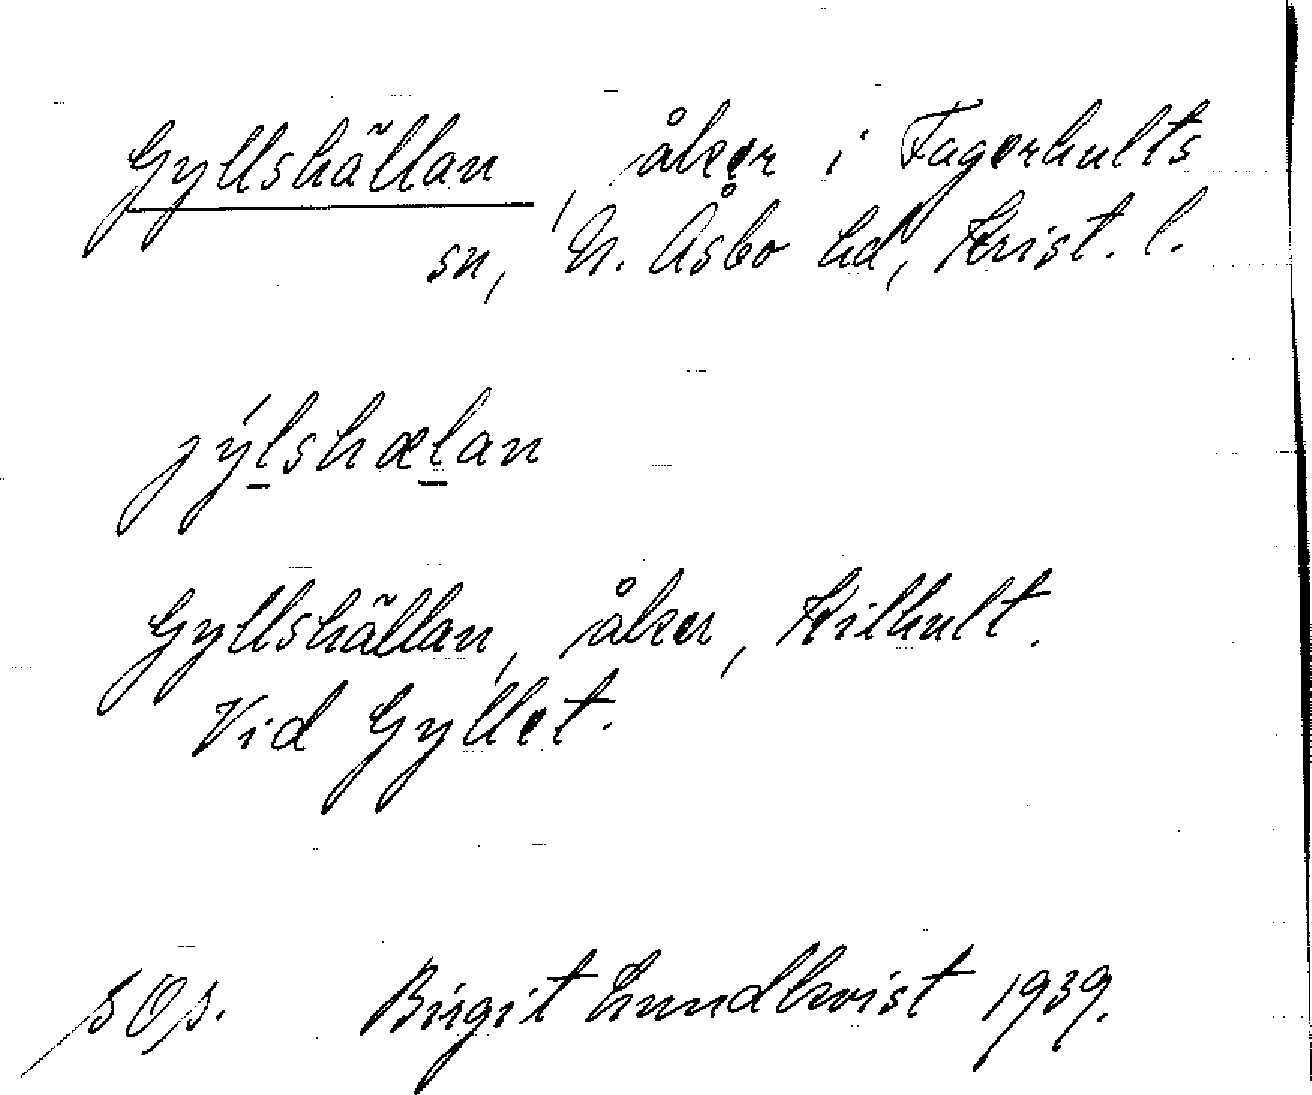 Gyllshällan, åker i Fagerhults
sn, N. Åsbo hd, Krist. l.
jýlshælan
Gyllshällan, åker, Kilhult.
Vid Gyllet.
Birgit Lundkvist 1939.